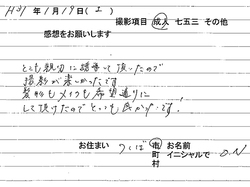 H31年1月19日(土)
撮影項目 成人 七五三 その他
感想をお願いします
とても親切に頂いたので
撮影が楽しかったです
髪型もメイクも希望通りに
して頂けたのでとっても良かったです!
お住まい つくば 市町村 お名前 イニシャルで O.N